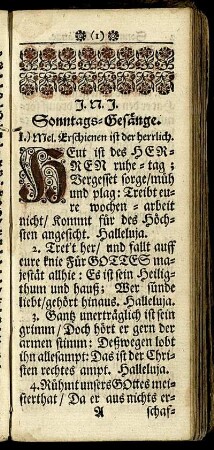 (1)
J. N. J.
Sonntags-Gesänge.
1.) Mel. Erschienen ist der herrlich.
HEut ist des HER-
REN ruhe-tag;
Vergesset sorge/müh
und plag: Treibt eu-
re wochen-arbeit
nicht/ Kommt für des Höch-
sten angesicht. Halleluja.
2. Tret't her/ und fallt auff
eure knie Für GOTTES ma-
jestät allhie: Es ist sein Heilig-
thum und hauß; Wer sünde
liebt/gehört hinaus. Halleluja.
3. Gantz unerträglich ist sein
grimm/ Doch hört er gern der
armen stimm: Deßwegen lobt
ihn allesampt: Das ist der Chri-
sten rechtes ampt. Halleluja.
4. Rühmt unsers GOttes mei-
sterthat/ Da er aus nichts er-
A schaf-